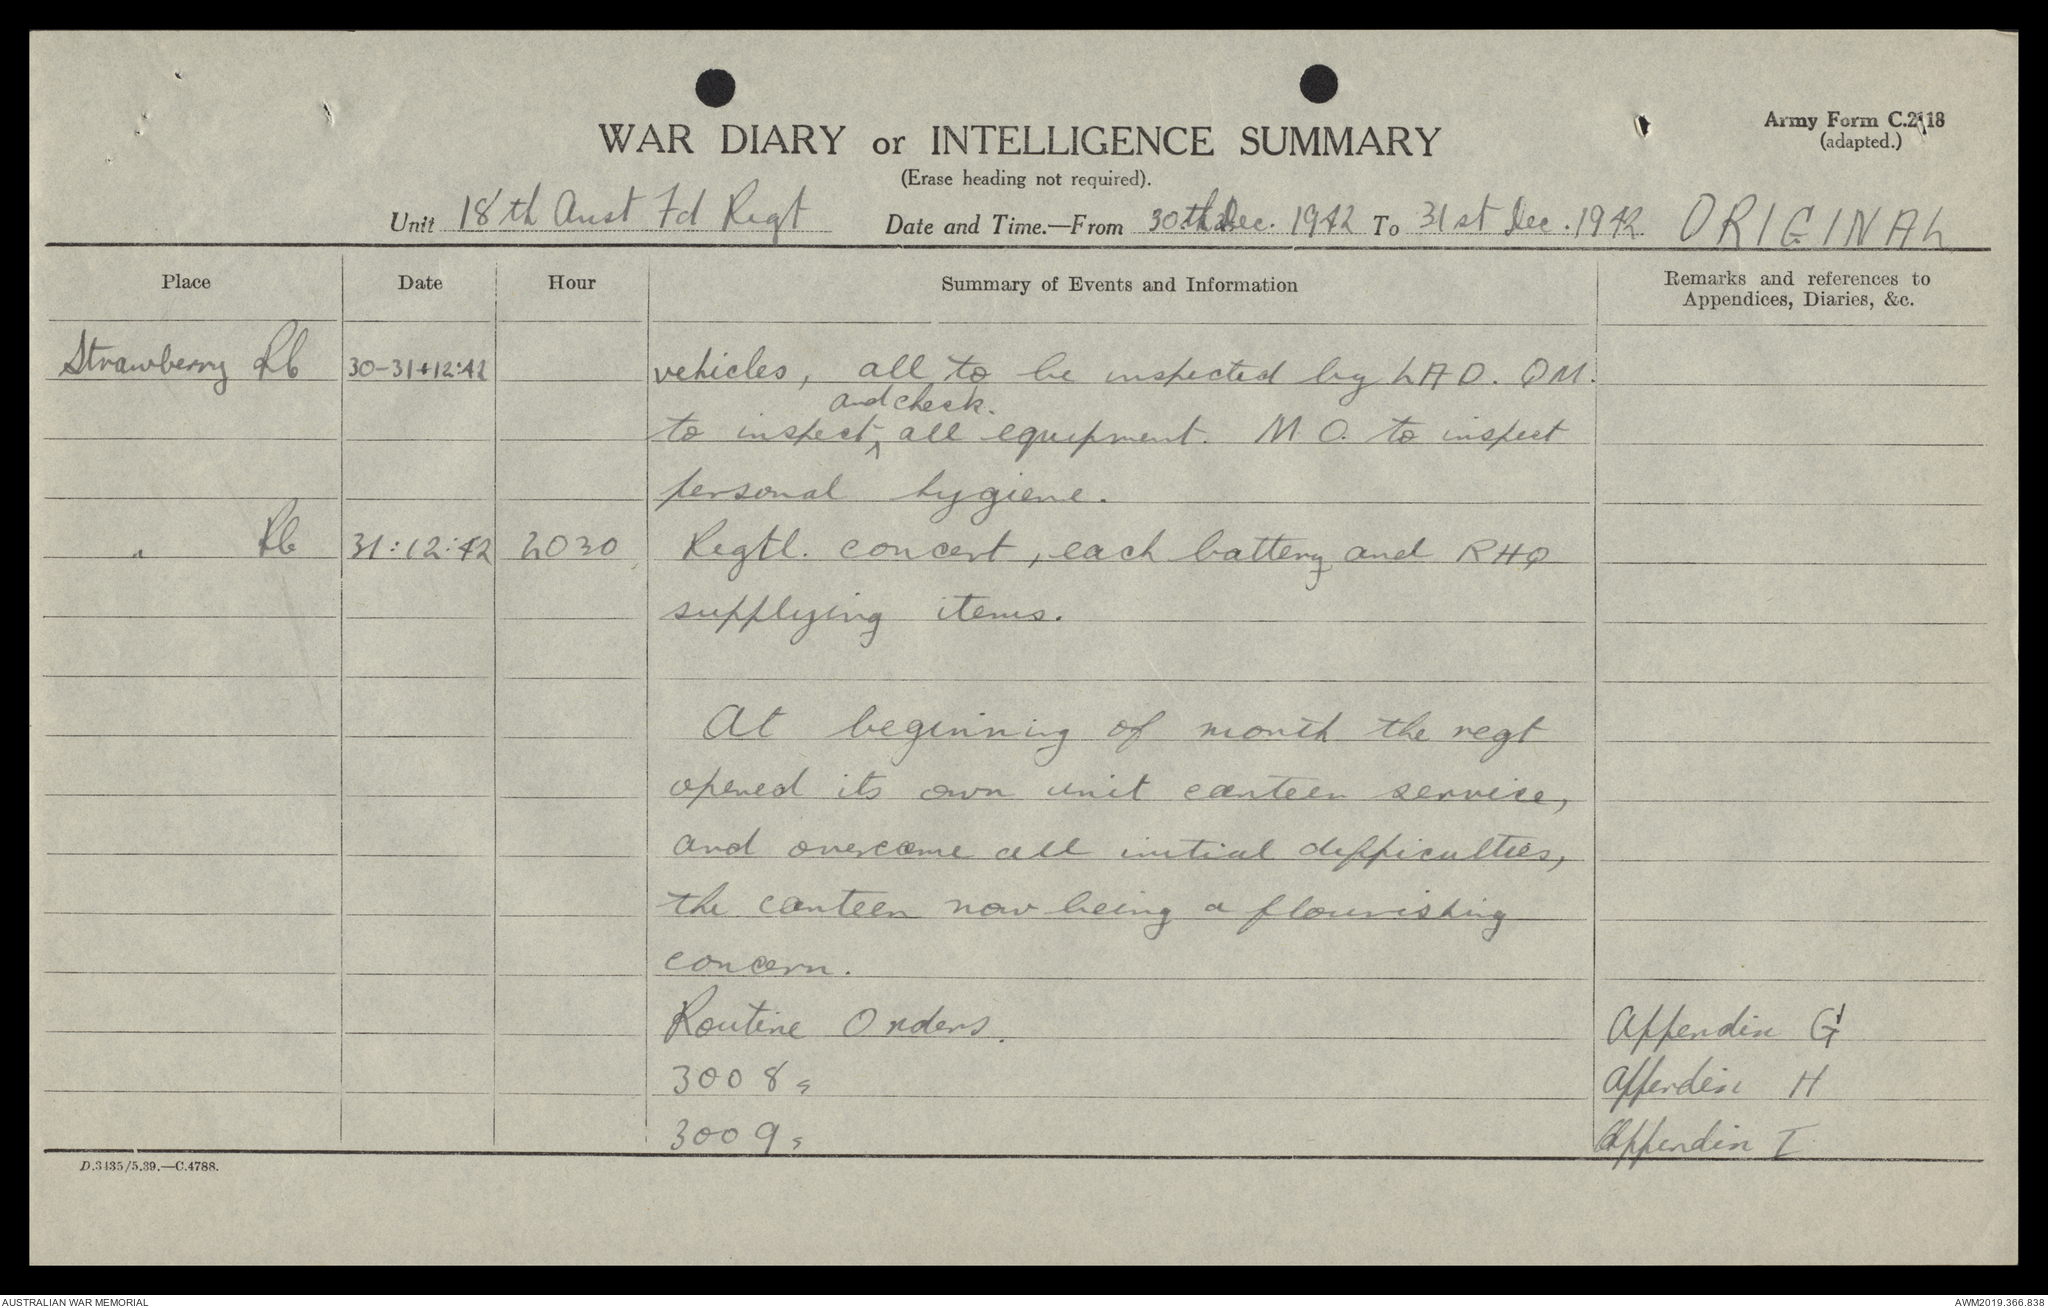 WAR DIARY or INTELLIGENCE SUMMARY
Army Form C.2118
(adapted.)
(Erase heading not required).
Unit 18th Aust Fd Regt Date and Time.—From 30th Dec. 1942 To 31st Dec. 1942 ORIGINAL
Place Date Hour Summary of Events and Information Remarks and references to
Appendices, Diaries, &c.
Strawberry 30-31:12:42 vehicles, all to be inspected by LAD. QM.
and check.
to inspect ^ all equipment. M.O. to inspect
personal hygiene.
" 31:12:42 2030 Regtl. concert, each battery and RHQ
supplying items.
At beginning of month the regt
opened its own unit canteen service,
and overcame all initial difficulties,
the canteen now being a flourishing
concern.
Routine Orders. Appendix G
3008s Appendix H
3009s Appendix I
D.3435/5.39.—C.4788.
AUSTRALIAN WAR MEMORIAL AWM2019.366.838